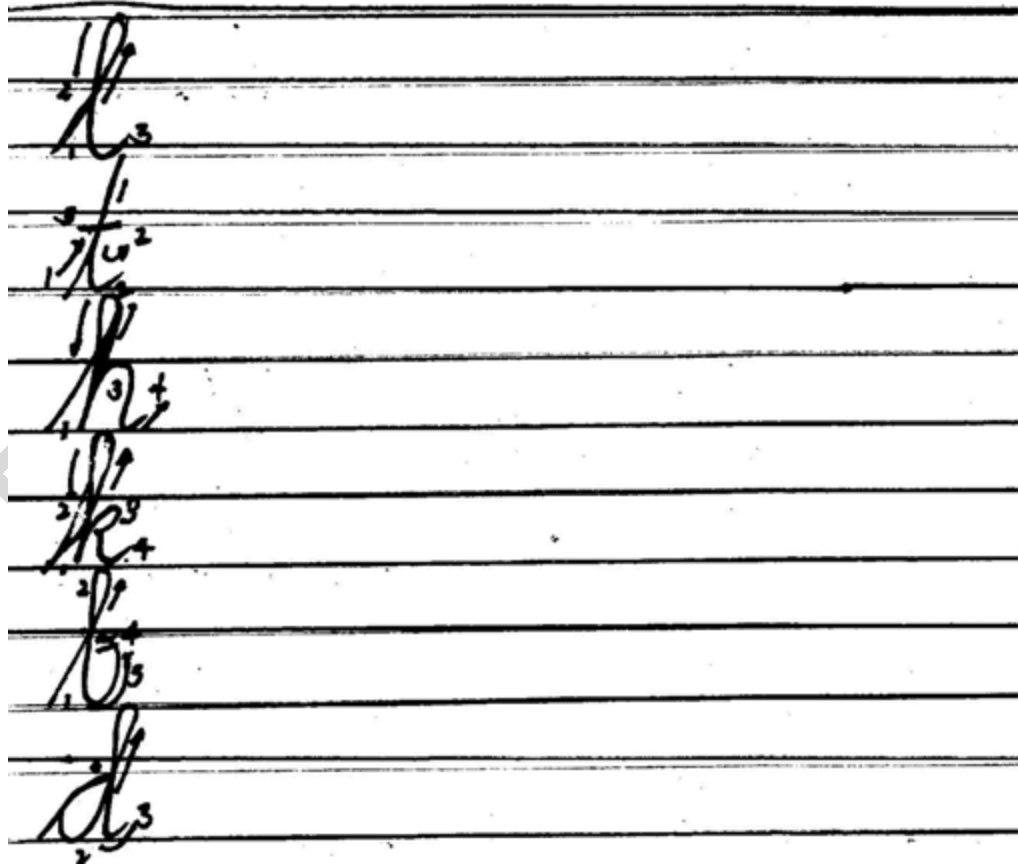 l
t
h
k
b
d